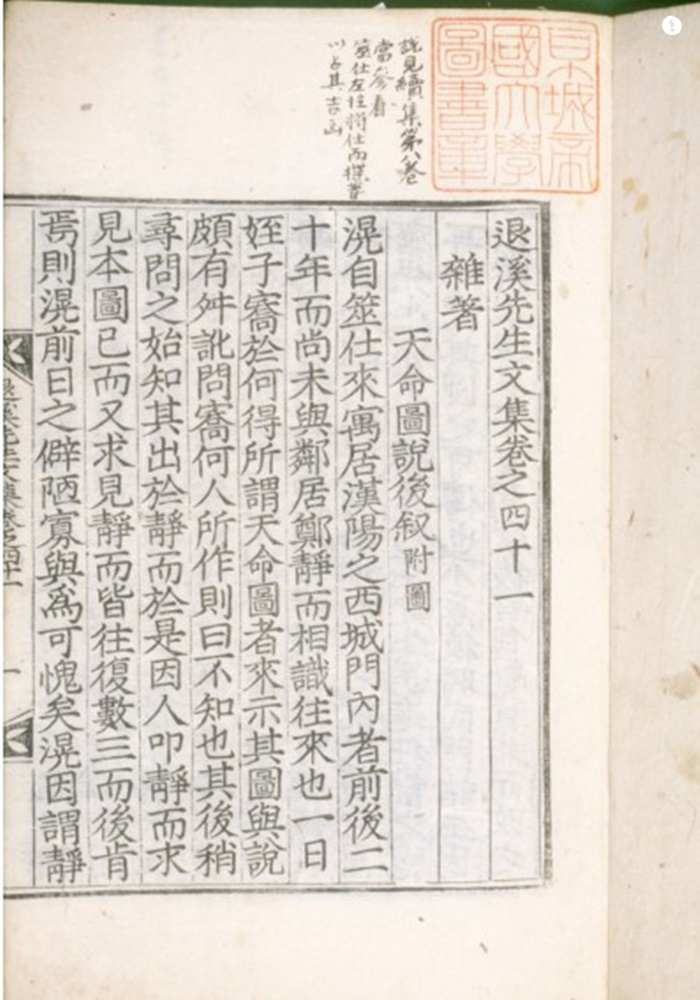 京城帝
國大學
圖書章
說見續集第八卷
當參看
筮仕左往將仕而揲蓍
以占其吉凶
退溪先生文集卷之四十一
雜著
天命圖說後叙附圖
滉自筮仕來寓居漢陽之西城門內者前後二
十年而尚未與鄰居鄭靜而相識往來也一日
姪子㝯於何得所謂天命圖者來示其圖與說
頗有舛訛問㝯何人所作則曰不知也其後稍
尋問之始知其出於靜而於是因人叩靜而求
見本圖已而又求見靜而皆往復數三而後肯
焉則滉前日之僻陋寡與爲可愧矣滉因謂靜
退溪先生文集卷之四十一
一